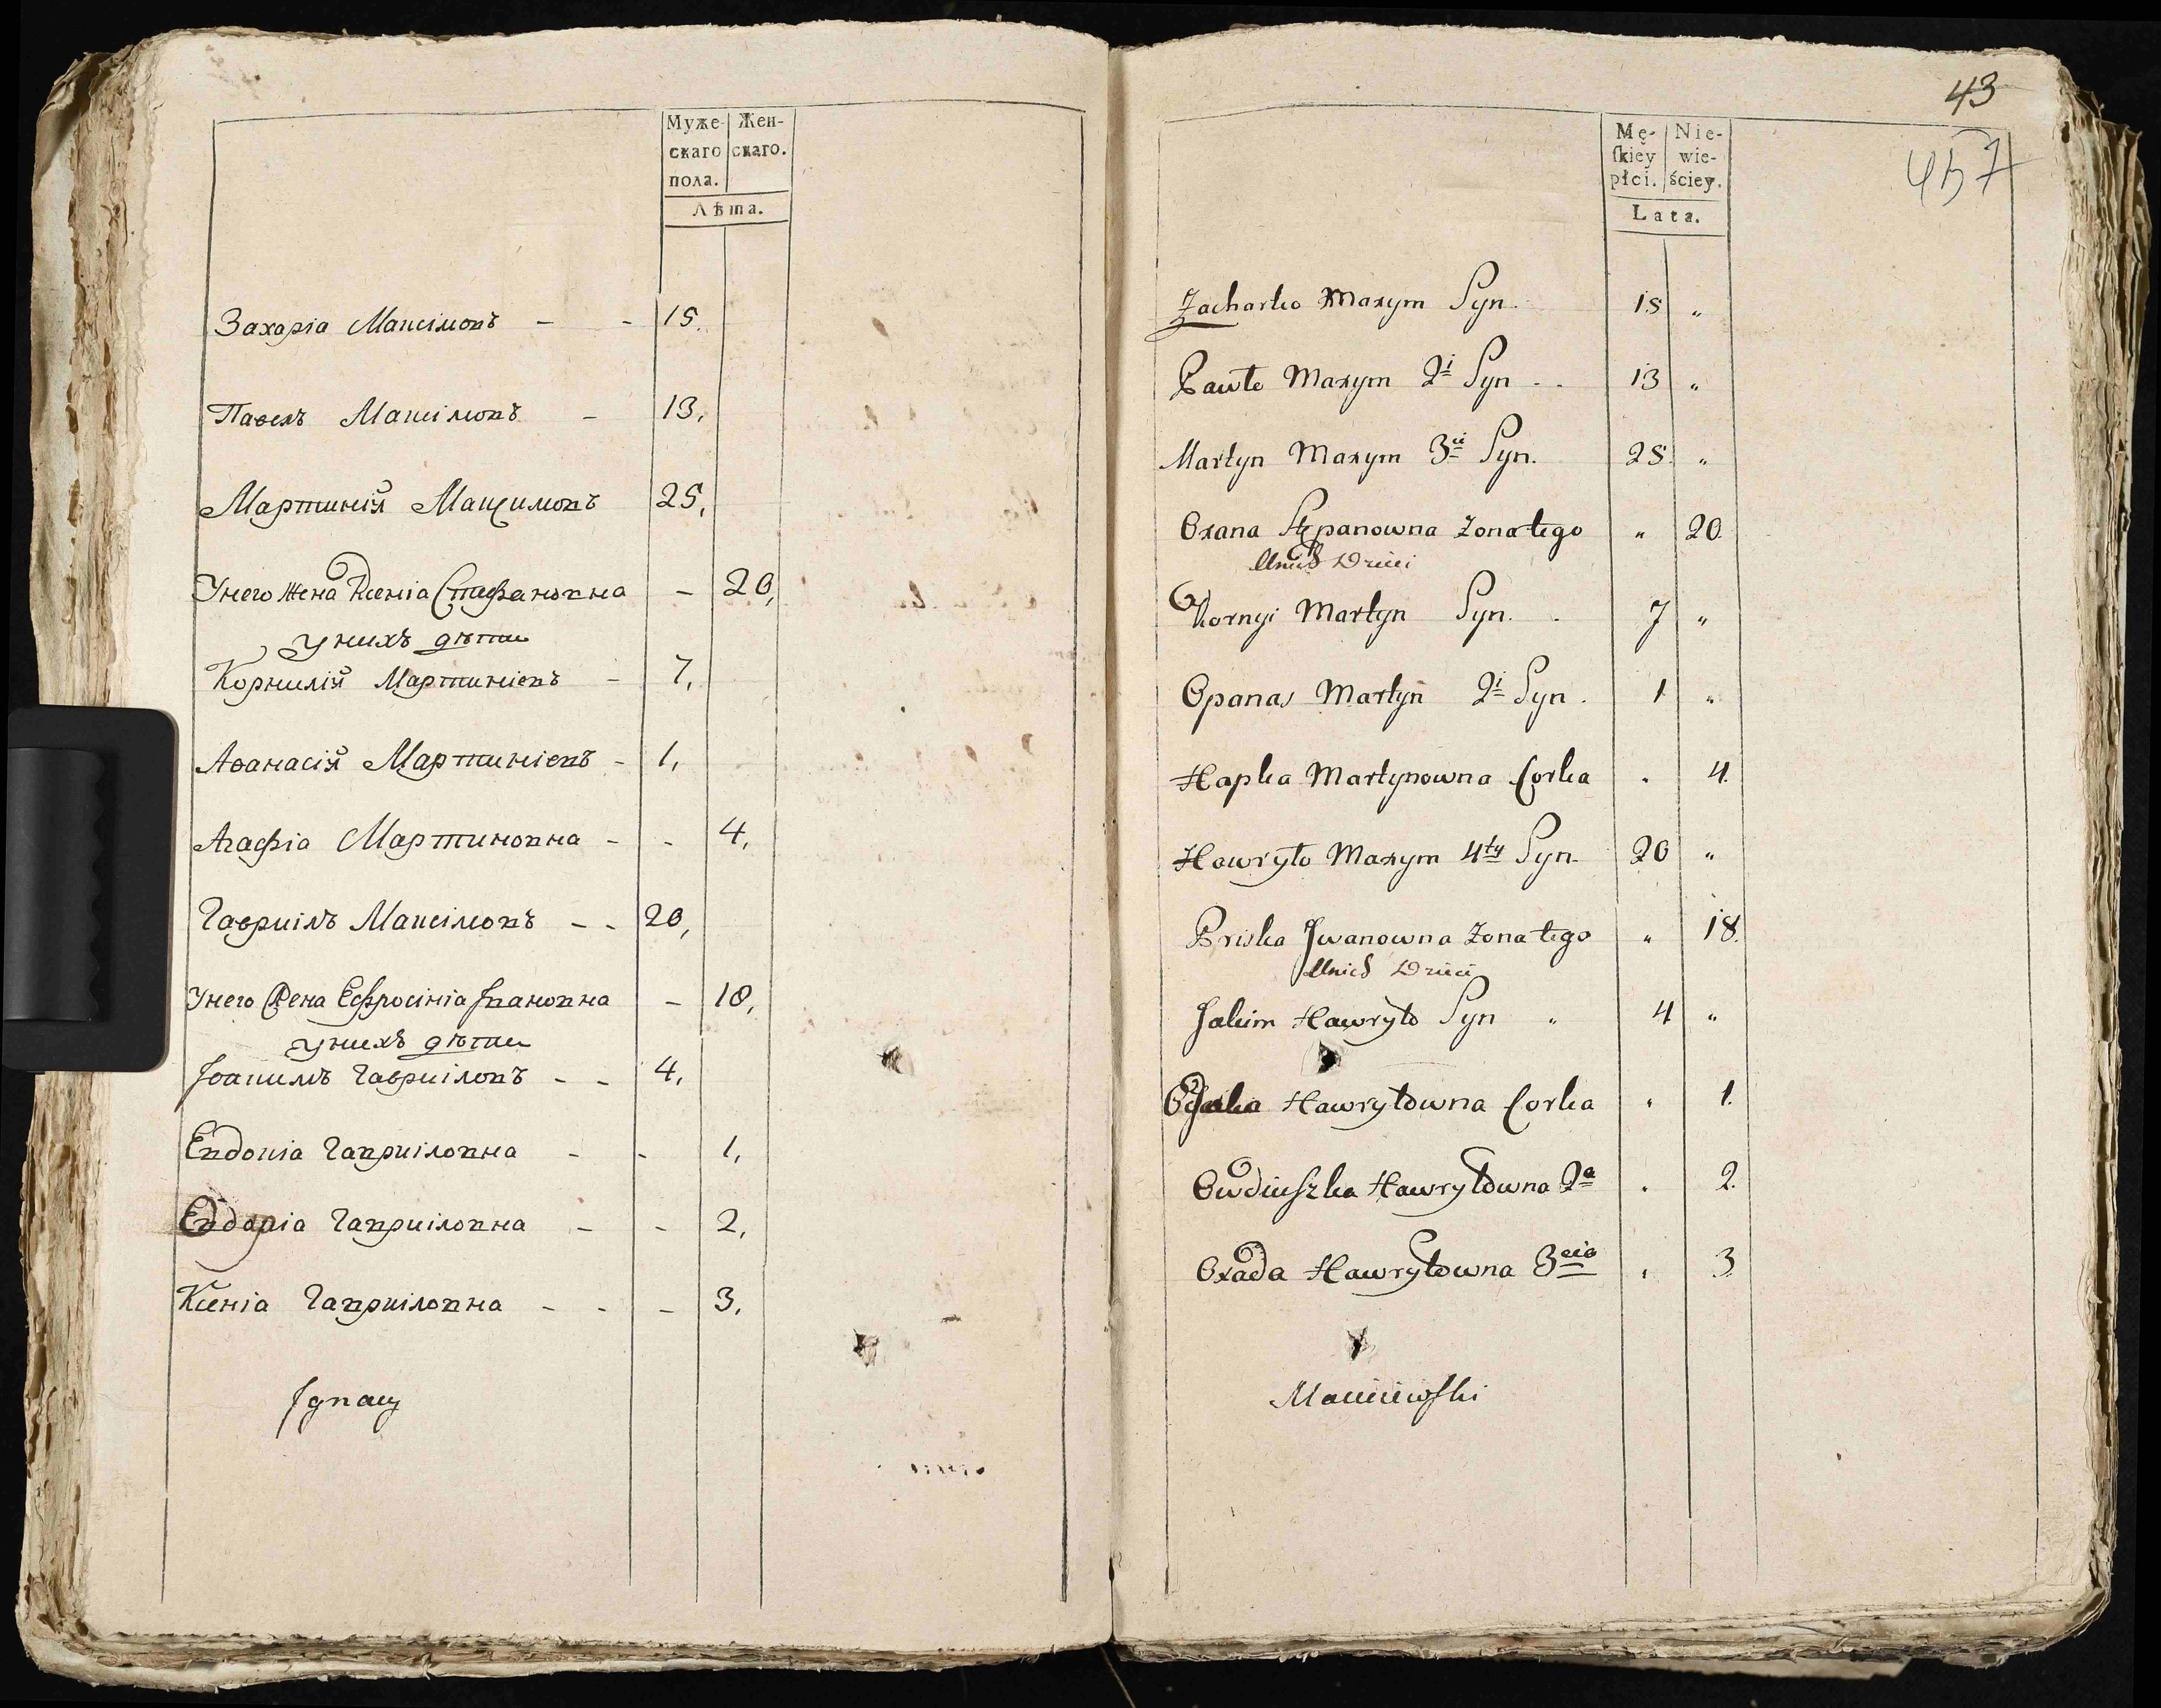 Муже- Жен-
скаго скаго.
пола.
Лѣта.
Захаріа Максімовъ - - 15.
Павелъ Максімовъ - 13,
Мартиній Максимовъ 25,
Унего жена Ксеніа Стефановна - 20,
унихъ дѣти
Корнилій Мартиніевъ - 7,
Аѳанасій Мартиніевъ - 1,
Агафіа Мартиновна - - 4,
Гавріилъ Максімовъ - - 20,
Унего жена Ефросініа Івановна - 18,
унихъ дѣти
Іоакимъ Гавріиловъ - - 4,
Евдокіа Гавріиловна - - 1,
Гавріиловна - - 2,
Ксеніа Гавріиловна - - - 3,
Ignacy
43
457
Mę- Nie-
ſkiey wie-
płci. ściey.
Lata.
Zacharko Maxym Syn. 15 „
Pawło Maxym 2i Syn - - 13 „
Martyn Maxym 3ci Syn. 25. „
Oxana Stepanowna Zona tego „ 20.
Unich Dzieci
Kornyi Martyn Syn. . 7 „
Opanas Martyn 2i Syn . 1 „
Hapka Martynowna Corka . 4.
Hawryło Maxym 4ty Syn. 20 „
Priska Jwanowna Zona tego „ 18.
Unich Dzieci
Jakim Hawryło Syn „ 4 „
Hawryłowna Corka „ 1.
Owdiuszka Hawryłowna 2a . 2.
Oxada Hawryłowna 3cia „ 3.